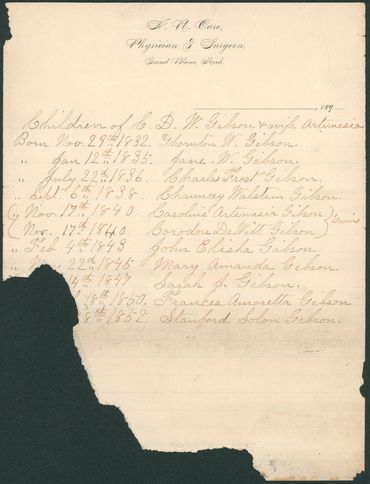 N. R. Case,
Physician & Surgeon,
Grand Blanc, Mich.
189
Children of C. D. W. Gibson & wife Artemesia
Born Nov. 29th 1832. Thornton W. Gibson.
" Jan 12th 1835. Jane W. Gibson.
" July 22th 1836. Charles Frost Gibson.
" Sept. 6th 1838. Chauncey Walstein Gibson.
" Nov. 17th 1840. Caroline Artemesia Gibson) Twins
" Nov. 17th 1840 Corodon DeWitt Gibson)
" Feb 4th 1843 John Elisha Gibson.
22th 1845 Mary Amanda Gibson.
14th 1847 Sarah J. Gibson.
18th 1850. Frances Amoretta Gibson
8th 1852. Stanford Solon Gibson.